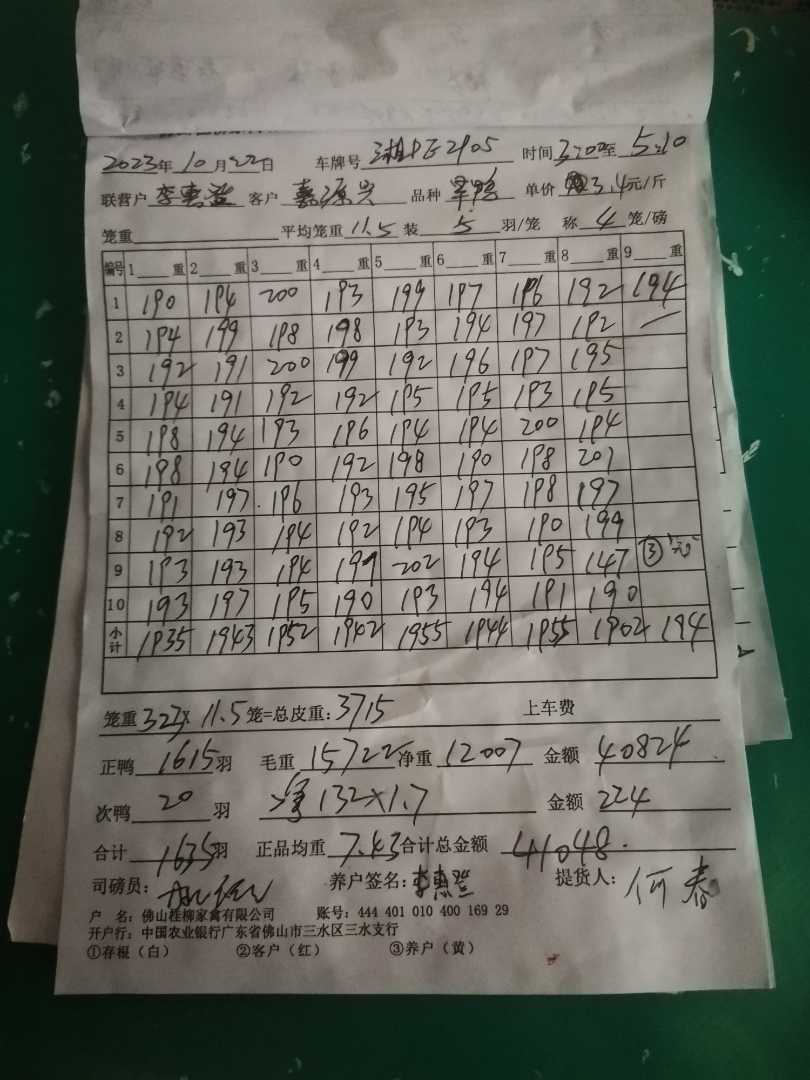 2023年 10月22日 车牌号 湘F2P05 时间3:00至 5:10
联营户 李惠登 客户 嘉源兴 品种 单鸭 单价 3.4元/斤
笼重 平均笼重 11.5 装 5 羽/笼 称 4 笼/磅
编号 1 重 2 重 3 重 4 重 5 重 6 重 7 重 8 重 9 重
1 190 194 200 193 199 197 196 192 194
2 194 199 198 198 193 194 197 192 —
3 192 191 200 199 192 196 197 195
4 194 191 192 192 195 195 193 195
5 198 194 193 196 194 194 200 194
6 198 194 190 192 198 190 198 201
7 191 197 196 193 195 197 198 197
8 192 193 194 192 194 193 190 199
9 193 193 194 199 202 194 195 147 ③
10 193 197 195 190 193 194 191 190
小计 1935 1943 1952 1942 1955 1944 1955 1902 194
笼重 323×11.5 笼=总皮重: 3715 上车费
正鸭 1615 羽 毛重 15722 净重 12007 金额 40824
次鸭 20 羽 净132×1.7 金额 224
合计 1635 羽 正品均重 7.43 合计总金额 41048.
司磅员: 养户签名: 李惠登 提货人: 何春
户 名: 佛山桂柳家禽有限公司 账号: 444 401 010 400 169 29
开户行: 中国农业银行广东省佛山市三水区三水支行
①存根（白） ②客户（红） ③养户（黄）